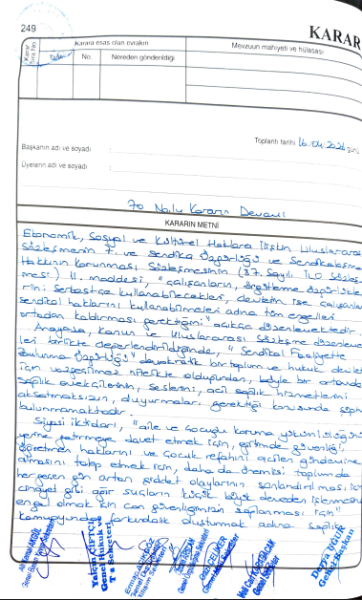 249
KARAR
Karar Sıra No
Karara esas olan evrakın
Mevzuun mahiyeti ve hülâsası
No.
Nereden gönderildiği
Toplantı tarihi 16.04.2026 günü
Başkanın adı ve soyadı
Üyelerin adı ve soyadı
70 Nolu Kararın Devamı
KARARIN METNİ
Ekonomik, Sosyal ve Kültürel Haklara İlişkin Uluslararası
Sözleşmenin 7. ve Sendika Özgürlüğü ve Sendikalaşma
Hakkının Korunması Sözleşmesinin (87 Sayılı ILO Sözleş-
mesi) 11. maddesi, "çalışanların, örgütlenme özgürlükle-
rini serbestçe kullanabilecekleri, devletin ise çalışanların
sendikal haklarını kullanabilmeleri adına tüm engelleri
ortadan kaldırması gerektiğini" açıkça düzenlemektedir.
Anayasa, kanun ve Uluslararası Sözleşme düzenleme-
leri birlikte değerlendirildiğinde, "Sendikal Faaliyette
Bulunma Özgürlüğü" demokratik bir toplum ve hukuk devleti
için vazgeçilmez nitelikte olduğundan, böyle bir ortamda
sağlık emekçilerinin, seslerini, acil sağlık hizmetlerini
aksatmaksızın, duyurmaları gerektiği konusunda şüphe
bulunmamaktadır.
Siyasi iktidarı, "aile ve çocuğu koruma yükümlülüğünü
yerine getirmeye davet etmek için, eğitimde güvenliği,
öğretmen haklarını ve çocuk refahını acilen gündeme
almasını talep etmek için, daha da önemlisi toplumda
her geçen gün artan şiddet olaylarının sonlandırılması için
cinayet gibi ağır suçların küçük büyük demeden işlenmesine
engel olmak için can güvenliğimizin sağlanması için"
kamuoyunda farkındalık oluşturmak adına sağlık
Yalçın ÇİFTÇİ
Genel Hukuk
Derya UĞUR
Genel Başkan